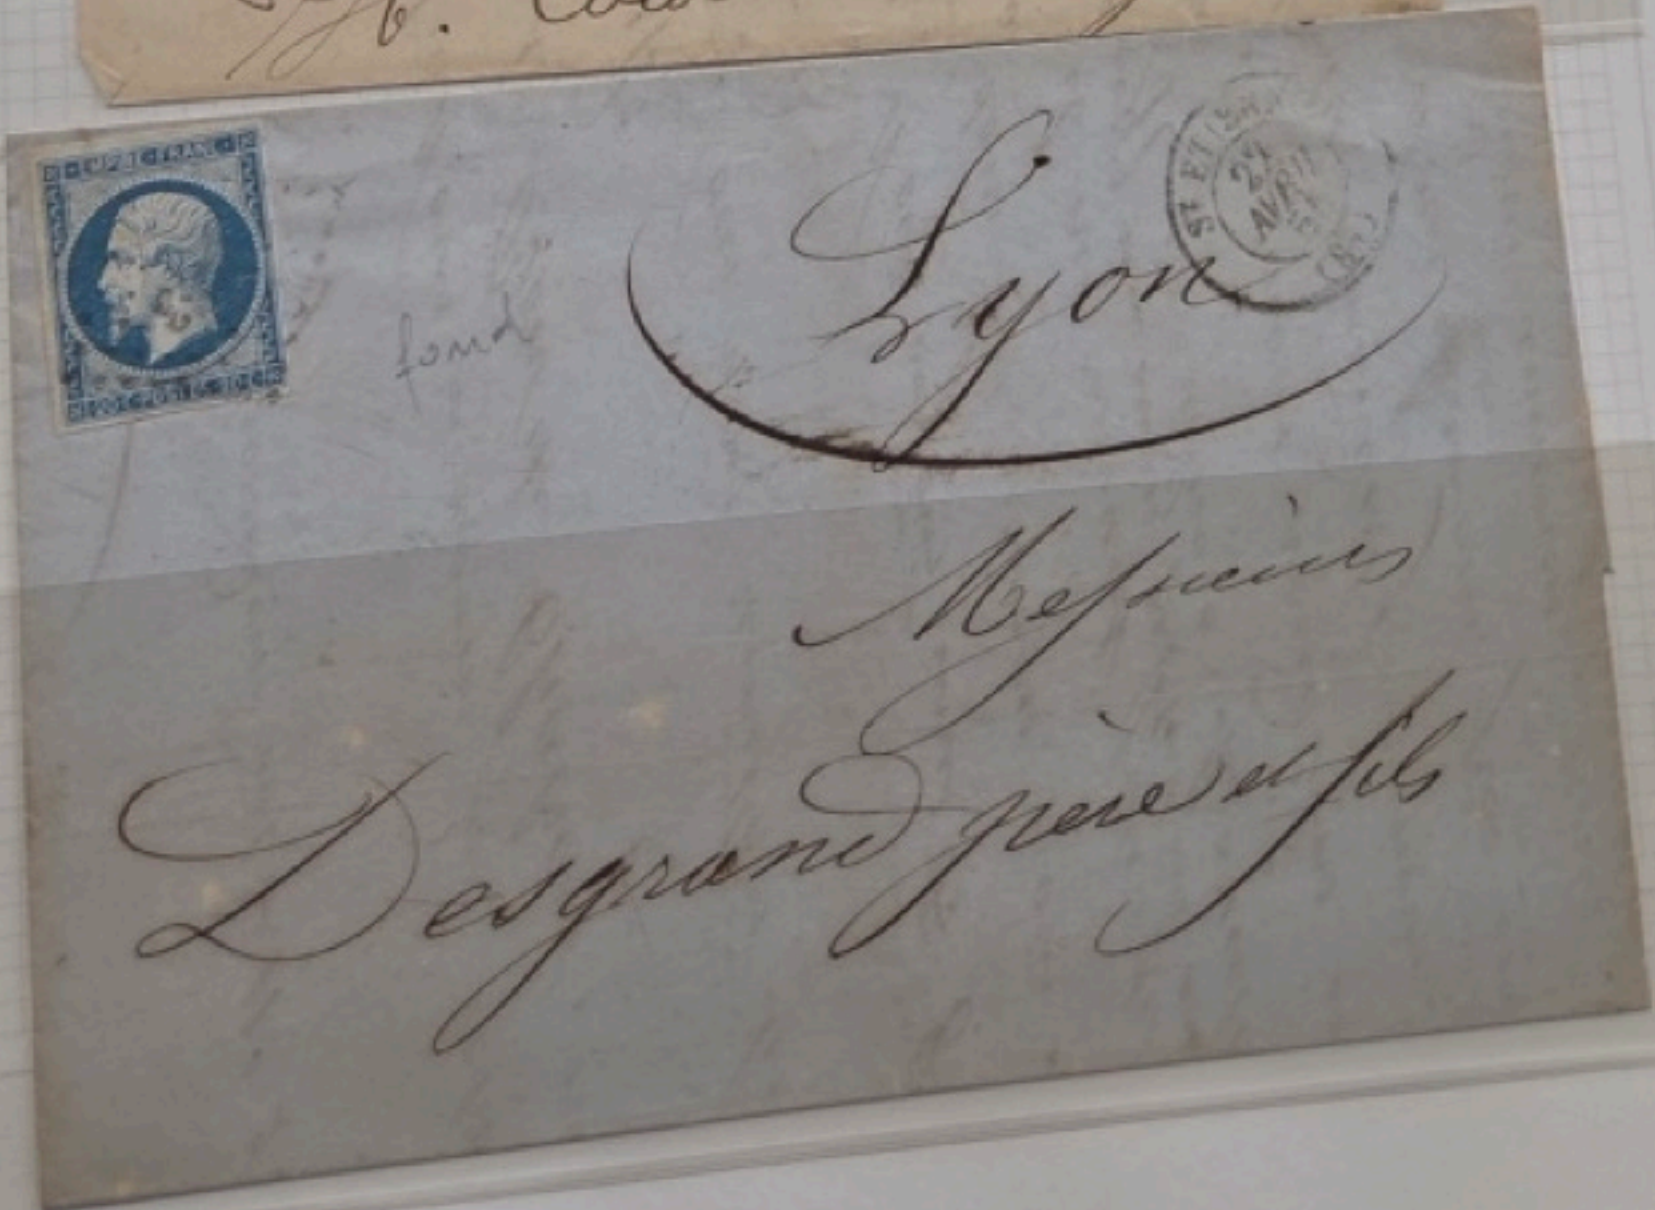 EMPIRE FRANC
20 C POSTES 20 C
fond
Lyon
ST ETIENNE
27
AVRIL
(84)
Messieurs
Desgrand père et fils